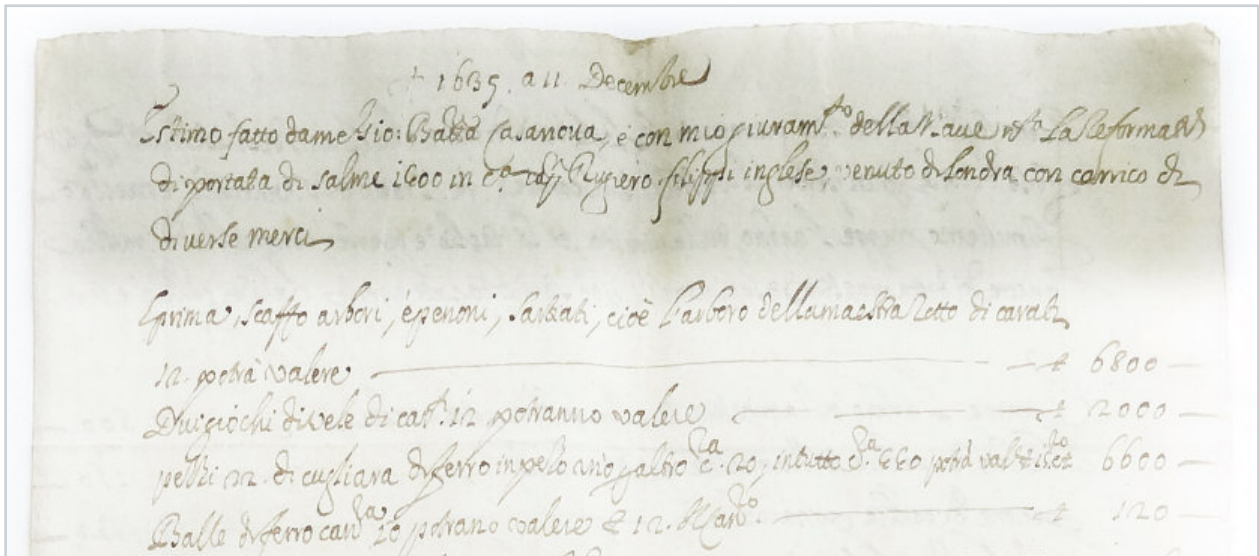 + 1635. a 11 Decembre
Estimo fatto da me Gio: Batta Casanova, e con mio giuram.to della Nave n.ta La Reformat
di portata di salme 1600 in c.a cap. Rugiero filippi inglese venuto di londra con carrico di
diverse merci
E prima, scaffo arbori, e penoni, sarziati, cioè l'arboro della maestra rotto di carati
12. potrà valere — 6800 —
Dui giochi di vele di cat. 12 potranno valere — 2000 —
pezzi 22. di cugliara di ferro in peso uno p altro c.a 20, in tutto c.a 440 potrà val 6600 —
Balle di ferro can.a 20 potrano valere 12. Il can.o — 120 —